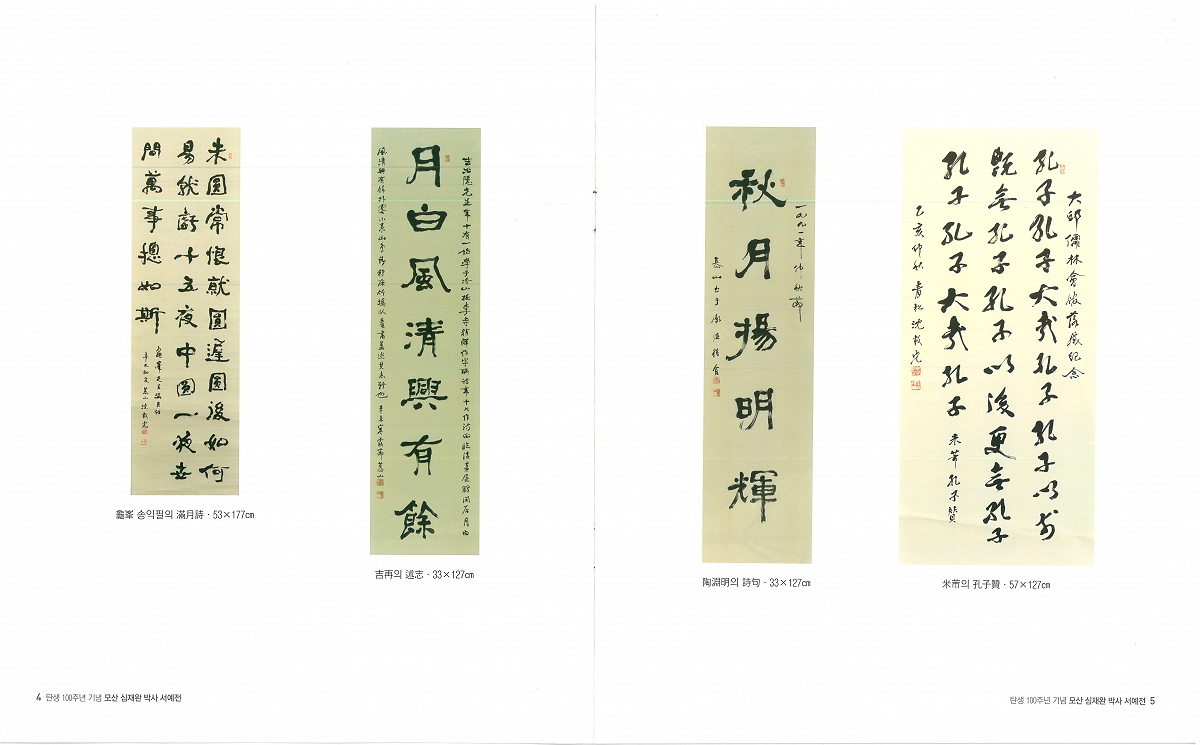 未圓常恨就圓遲圓後如何
易就虧十五夜中圓一夜世
間萬事摠如斯
龜峯先生滿月詩
慕山 沈載完
龜峯 송익필의 滿月詩 · 53×177cm
月白風清興有餘
慕山
吉再의 述志 · 33×127cm
一九九一年 仲秋節
秋月揚明輝
慕山書于
陶淵明의 詩句 · 33×127cm
大邱儒林會館落成紀念
孔子孔子大哉孔子孔子以前
既無孔子孔子以後更無孔子
孔子孔子大哉孔子 米芾孔子贊
乙亥仲秋 青松沈載完
米芾의 孔子贊 · 57×127cm
4 탄생 100주년 기념 모산 심재완 박사 서예전
탄생 100주년 기념 모산 심재완 박사 서예전 5